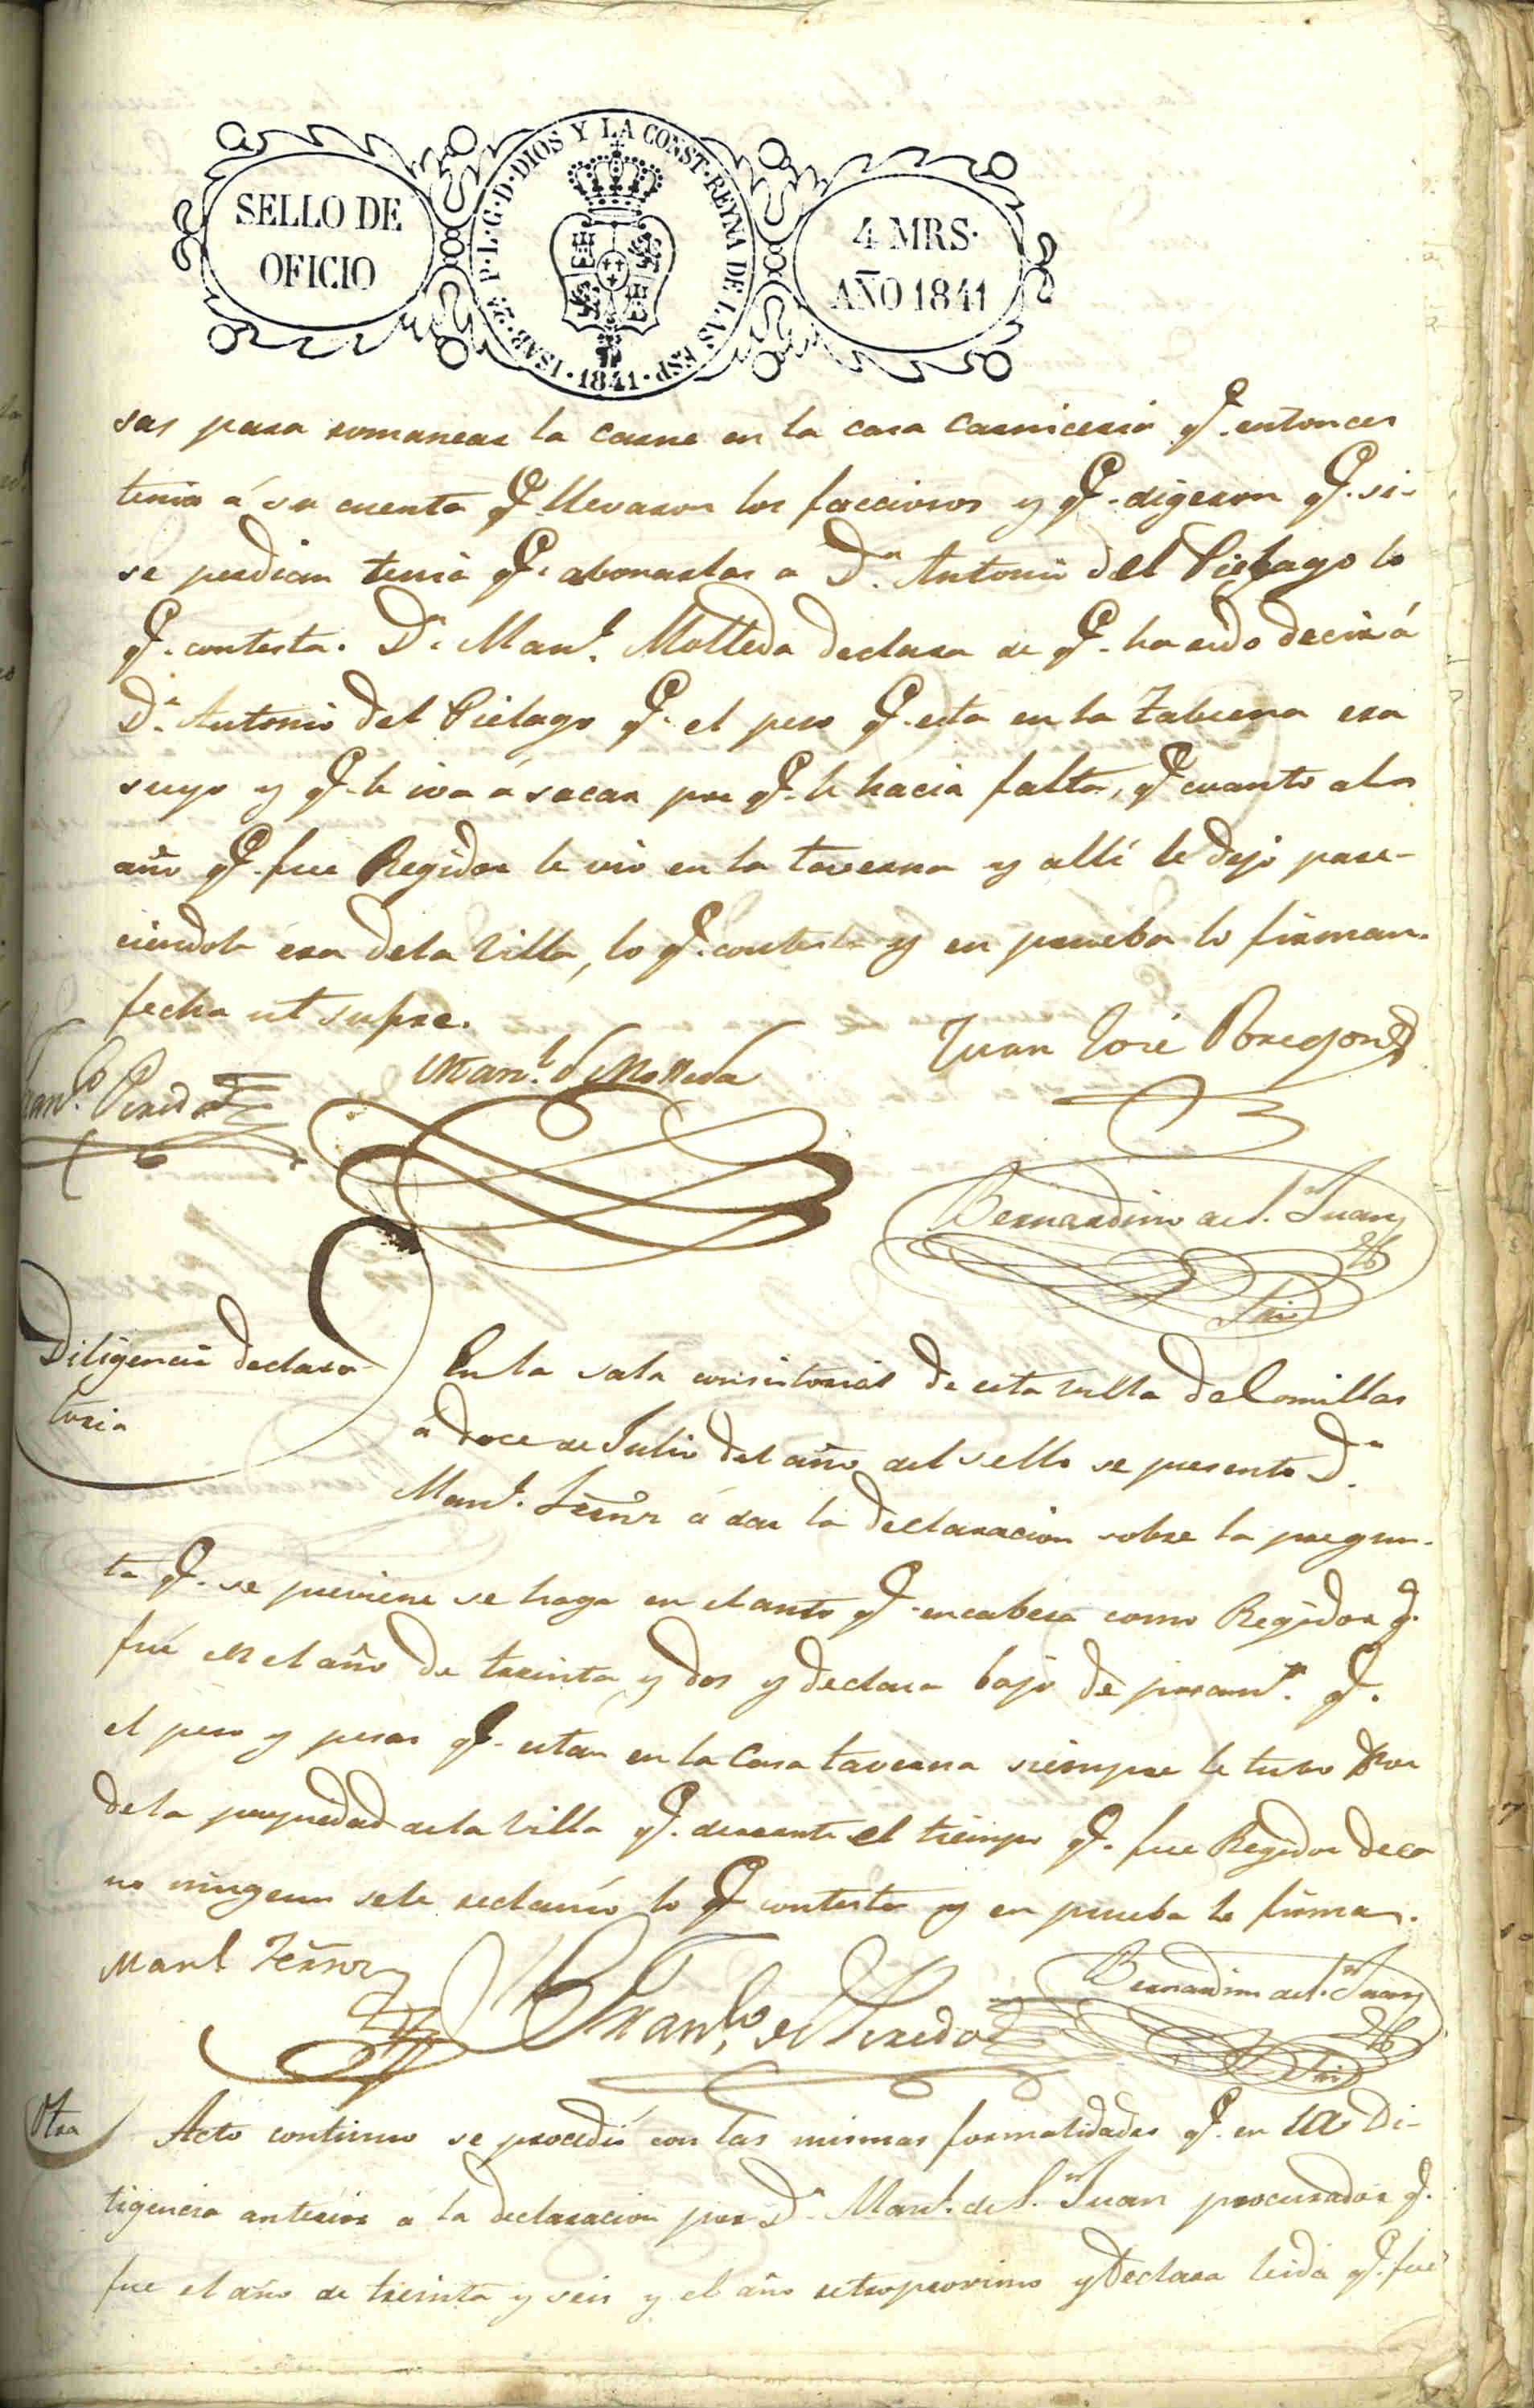 SELLO DE
OFICIO
ISAB. 2ª P. L. G. D. DIOS Y LA CONST. REYNA DE LAS ESP. 1841.
4 MRS.
AÑO 1841
sas para romanear la carne en la casa Carniceria q.e entonces
tenia á su cuenta q.e llevaron los facciosos y q.e digeron q.e si-
se perdian tenia q.e abonarlas a D.n Antonio del Pielago lo
q.e contesta. D.n Man.l Molleda declara de q.e ha oido decir á
D.n Antonio del Pielago q.e el peso q.e esta en la Tabierna era
suyo y q.e le iva á sacar por q.e le hacia falta, q.e cuanto al
año q.e fue Regidor le vio en la taverna y allí le dejo pare-
ciendole era dela Villa, lo q.e contesta y en prueba lo firman.
fecha ut supra.
Juan José Obregon
Man.l d Molleda
Fran.co Peredo
Bernardino de S.n Juan
Srio
Diligencia declara
toria
En la sala consistorial de esta villa de Comillas
á doce de Julio del año del sello se presento D.n
Man.l á dar la declaracion sobre la pregun-
ta q.e se previene se haga en el auto q.e encabeza como Regidor q.e
fué en el año de treinta y dos y declara bajo de juram.to q.e
el peso y pesas q.e estan en la Casa taverna siempre le tubo por
dela propiedad de la Villa q.e durante el tiempo q.e fue Regidor deca
no ninguno se le reclamó lo q.e contesta y en prueba lo firma.
Manl
Fran.co de Peredo
Bernardino de S.n Juan
Srio
Otra
Acto continuo se procedió con las mismas formalidades q.e en la Di-
ligencia anterior a la declaracion por D.n Man.l de S.n Juan procurador q.e
fue el año de treinta y seis y el año retroproximo y declara leida q.e fué